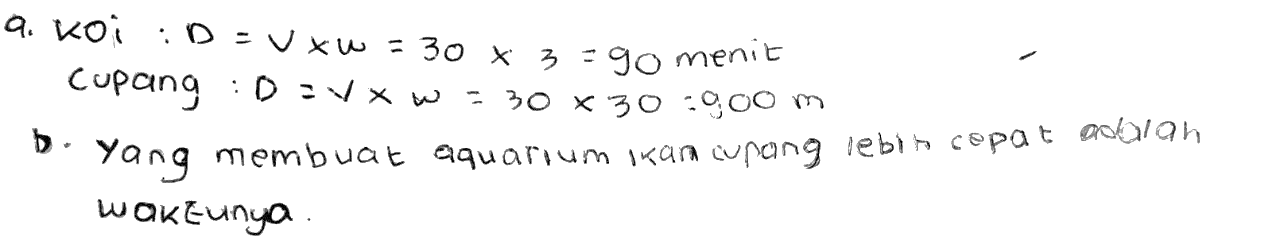 a. Koi : D = V x w = 30 x 3 = 90 menit
Cupang : D = V x w = 30 x 30 = 900 m
b. Yang membuat aquarium ikan cupang lebih cepat adalah
waktunya.